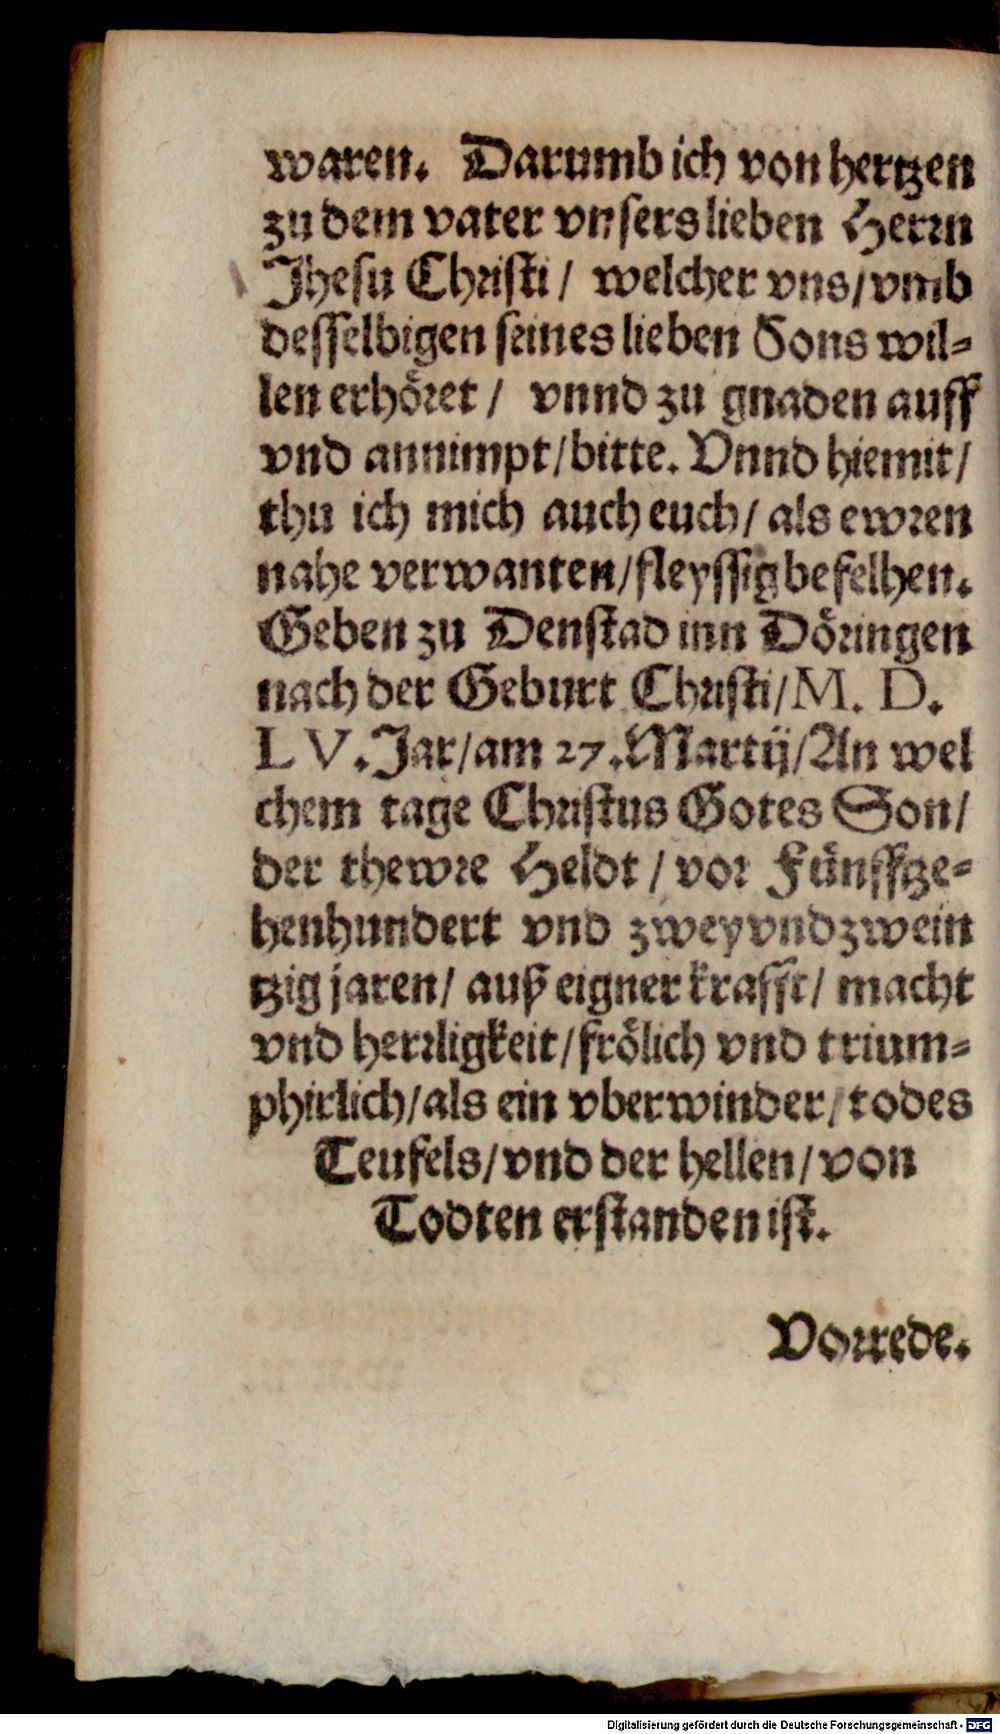 waren. Darumb ich von hertzen
zu dem vater vnsers lieben Herrn
Jhesu Christi / welcher vns / vmb
desselbigen seines lieben Sons wil-
len erhöret / vnnd zu gnaden auff
vnd annimpt / bitte. Vnnd hiemit /
thu ich mich auch euch / als ewren
nahe verwanten / fleyssig befelhen.
Geben zu Denstad inn Döringen
nach der Geburt Christi / M. D.
L V. Jar / am 27. Martij / An wel
chem tage Christus Gotes Son /
der thewre Heldt / vor Fünffze-
henhundert vnd zweyvndzwein
tzig jaren / auß eigner krafft / macht
vnd herrligkeit / frölich vnd trium-
phirlich / als ein vberwinder / todes
Teufels / vnd der hellen / von
Todten erstanden ist.
Vorrede.
Digitalisierung gefördert durch die Deutsche Forschungsgemeinschaft - DFG